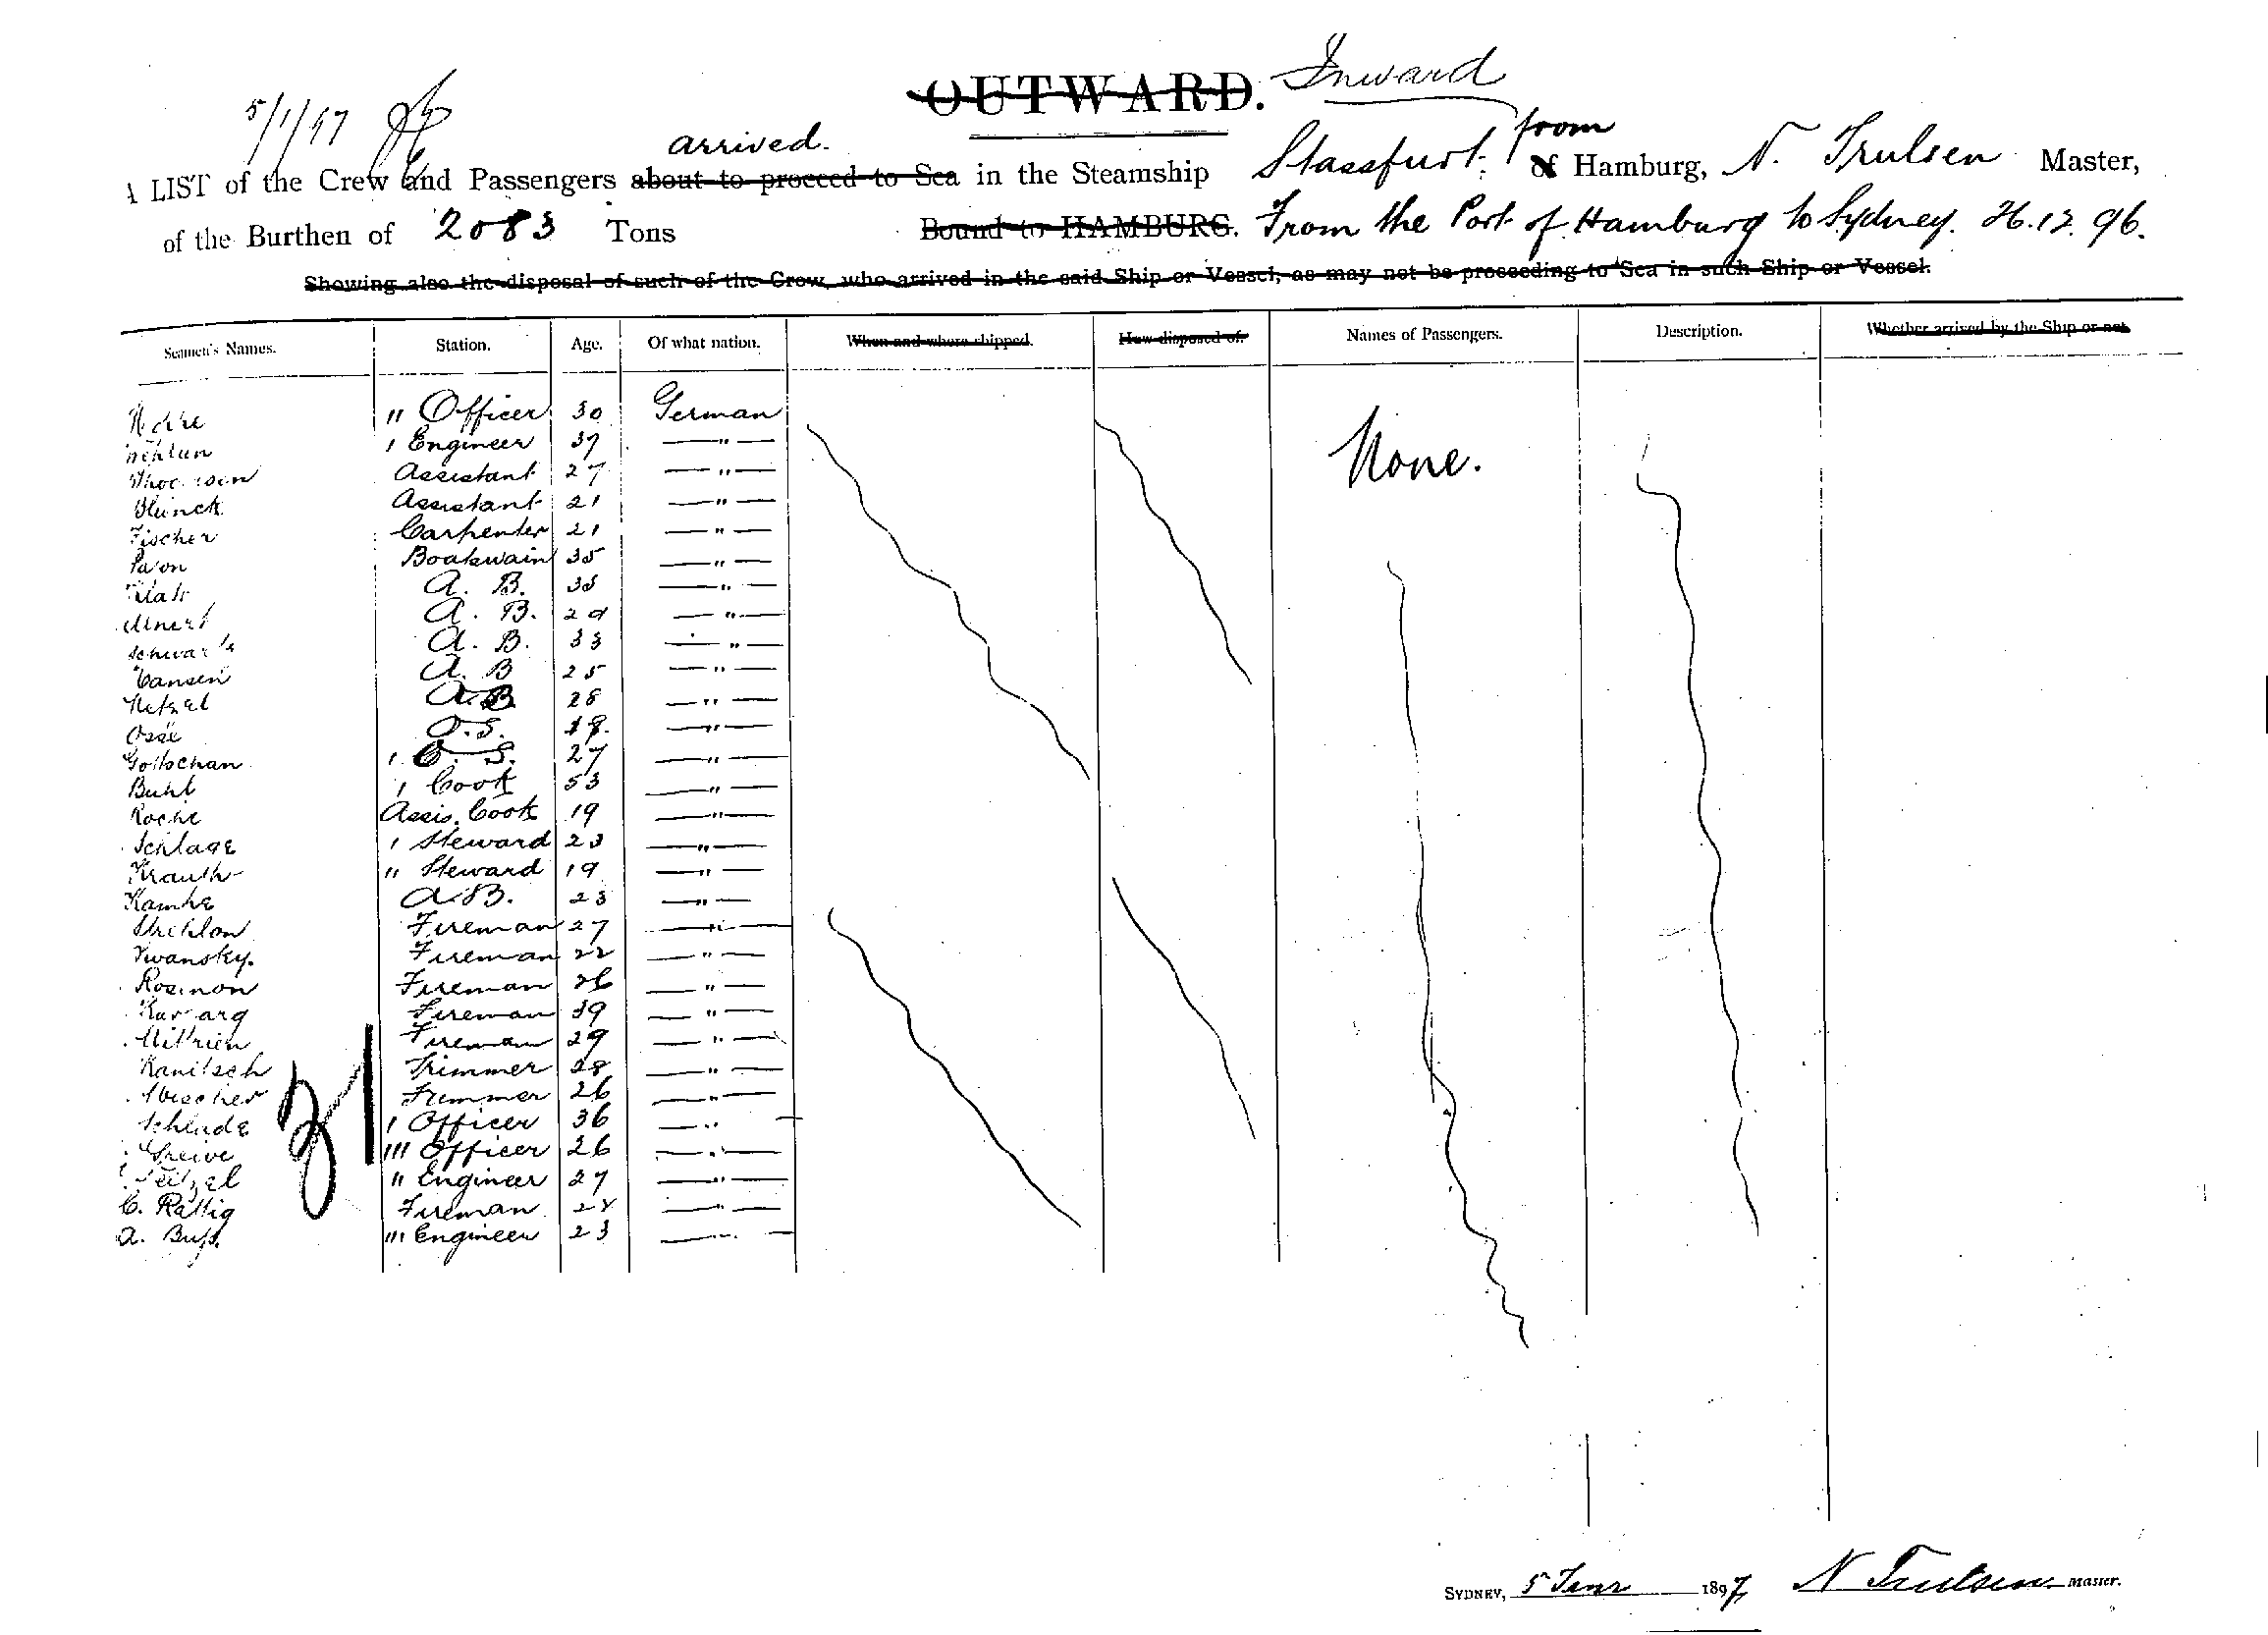 OUTWARD. Inward
5/1/97
arrived. from
A LIST of the Crew and Passengers about to proceed to Sea in the Steamship Stassfurt. of Hamburg, N. Trulsen Master,
of the Burthen of 2083 Tons Bound to HAMBURG. From the Port of Hamburg to Sydney. 26.12.96.
Showing also the disposal of such of the Crew, who arrived in the said Ship or Vessel, as may not be proceeding to Sea in such Ship or Vessel.
Seamen's Names. Station. Age. Of what nation. When and where shipped. How disposed of. Names of Passengers. Description. Whether arrived by the Ship or not
" Officer 30 German None.
' Engineer 37 — " —
Assistant 27 — " —
Assistant 21 — " —
Fischer Carpenter 21 — " —
Boatswain 35 — " —
A. B. — " —
A. B. 29 — " —
A. B. 33 — " —
Hansen A. B 25 — " —
A. B. 28 — " —
O. S. 18. — " —
Gottschan ' O. S. 27 — " —
Buhl ' Cook 53 — " —
Roche Assis. Cook 19 — " —
Schlage ' Steward 23 — " —
Krauth " Steward 19 — " —
A. B. 23 — " —
Fireman 27 — " —
Iwansky. Fireman 22 — " —
Rosinon Fireman 26 — " —
Fireman 39 — " —
Fireman 29 — " —
Kanitsch Trimmer 28 — " —
Trimmer 26 — " —
Schlade ' Officer 36 — " —
Greive "' Officer 26 — " —
" Engineer 27 — " —
C. Rattig Fireman — " —
A. Buß. "' Engineer 23 — " —
31
SYDNEY, 5 Janr 1897 N Trulsen master.